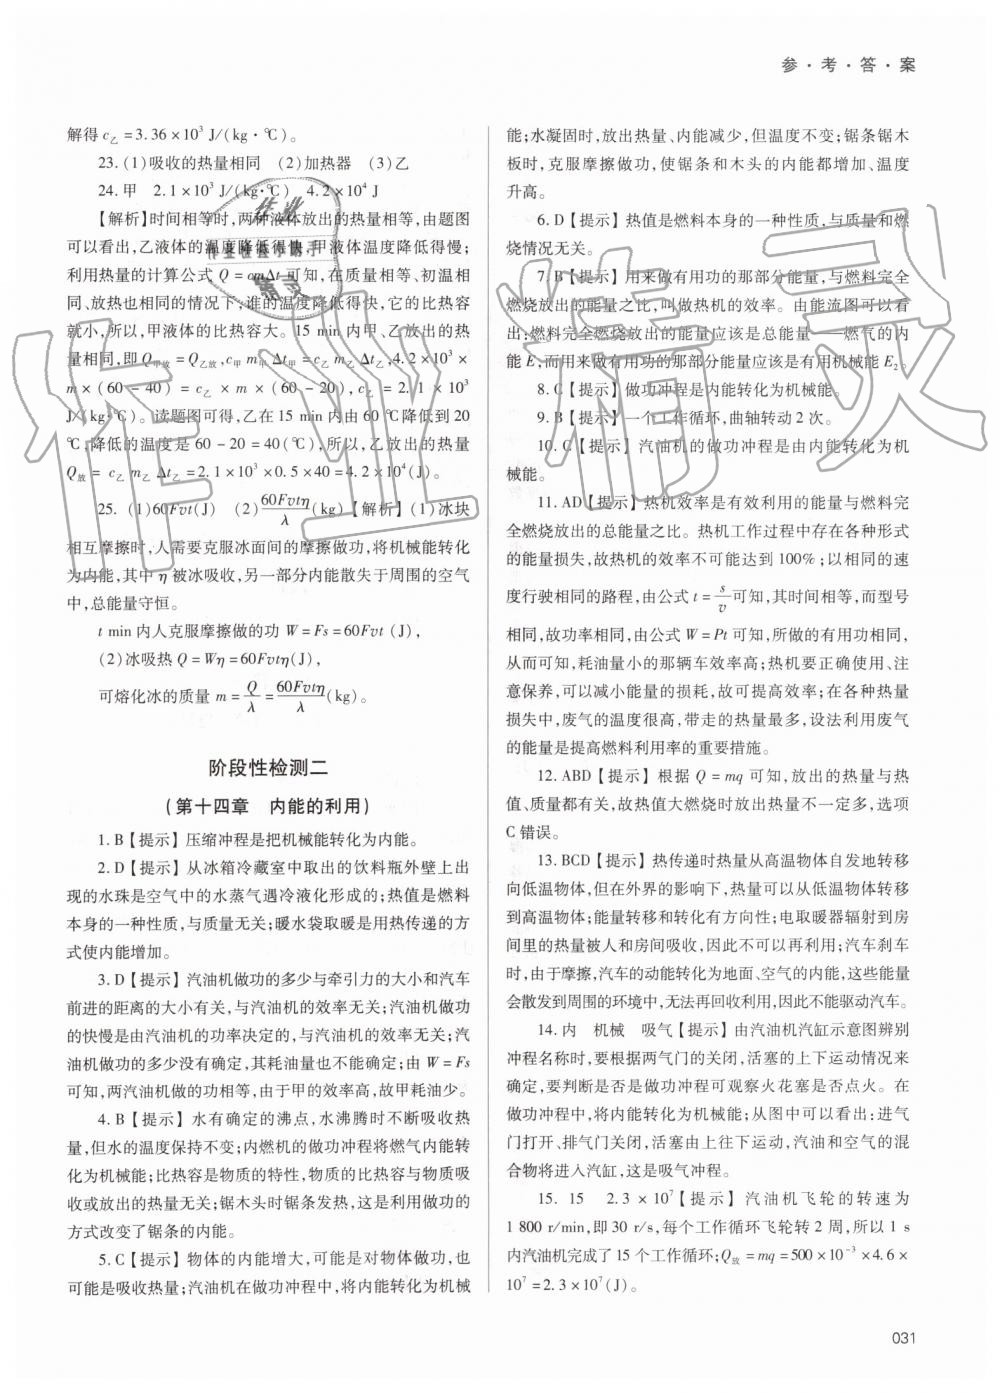 参·考·答·案
解得 c乙=3.36×10³ J/(kg·℃)。
23. (1)吸收的热量相同 (2)加热器 (3)乙
24. 甲 2.1×10³ J/(kg·℃) 4.2×10⁴ J
【解析】时间相等时,两种液体放出的热量相等,由题图
可以看出,乙液体的温度降低得快,甲液体温度降低得慢;
利用热量的计算公式 Q=cmΔt 可知,在质量相等、初温相
同、放热也相同的情况下,谁的温度降低得快,它的比热容
就小,所以,甲液体的比热容大。15 min 内甲、乙放出的热
量相同,即 Q甲放=Q乙放,c甲 m甲 Δt甲=c乙 m乙 Δt乙,4.2×10³×
m×(60-40)=c乙×m×(60-20),c乙=2.1×10³
J/(kg·℃)。读题图可得,乙在 15 min 内由 60 ℃降低到 20
℃,降低的温度是 60-20=40(℃),所以,乙放出的热量
Q放=c乙 m乙 Δt乙=2.1×10³×0.5×40=4.2×10⁴(J)。
25. (1)60Fvt(J) (2)60Fvtη/λ(kg)【解析】(1)冰块
相互摩擦时,人需要克服冰面间的摩擦做功,将机械能转化
为内能,其中 η 被冰吸收,另一部分内能散失于周围的空气
中,总能量守恒。
t min 内人克服摩擦做的功 W=Fs=60Fvt (J),
(2)冰吸热 Q=Wη=60Fvtη(J),
可熔化冰的质量 m=Q/λ=60Fvtη/λ(kg)。
阶段性检测二
(第十四章 内能的利用)
1. B【提示】压缩冲程是把机械能转化为内能。
2. D【提示】从冰箱冷藏室中取出的饮料瓶外壁上出
现的水珠是空气中的水蒸气遇冷液化形成的;热值是燃料
本身的一种性质,与质量无关;暖水袋取暖是用热传递的方
式使内能增加。
3. D【提示】汽油机做功的多少与牵引力的大小和汽车
前进的距离的大小有关,与汽油机的效率无关;汽油机做功
的快慢是由汽油机的功率决定的,与汽油机的效率无关;汽
油机做功的多少没有确定,其耗油量也不能确定;由 W=Fs
可知,两汽油机做的功相等,由于甲的效率高,故甲耗油少。
4. B【提示】水有确定的沸点,水沸腾时不断吸收热
量,但水的温度保持不变;内燃机的做功冲程将燃气内能转
化为机械能;比热容是物质的特性,物质的比热容与物质吸
收或放出的热量无关;锯木头时锯条发热,这是利用做功的
方式改变了锯条的内能。
5. C【提示】物体的内能增大,可能是对物体做功,也
可能是吸收热量;汽油机在做功冲程中,将内能转化为机械
能;水凝固时,放出热量、内能减少,但温度不变;锯条锯木
板时,克服摩擦做功,使锯条和木头的内能都增加、温度
升高。
6. D【提示】热值是燃料本身的一种性质,与质量和燃
烧情况无关。
7. B【提示】用来做有用功的那部分能量,与燃料完全
燃烧放出的能量之比,叫做热机的效率。由能流图可以看
出:燃料完全燃烧放出的能量应该是总能量——燃气的内
能 E,而用来做有用功的那部分能量应该是有用机械能 E₂。
8. C【提示】做功冲程是内能转化为机械能。
9. B【提示】一个工作循环,曲轴转动 2 次。
10. C【提示】汽油机的做功冲程是由内能转化为机
械能。
11. AD【提示】热机效率是有效利用的能量与燃料完
全燃烧放出的总能量之比。热机工作过程中存在各种形式
的能量损失,故热机的效率不可能达到 100%;以相同的速
度行驶相同的路程,由公式 t=s/v可知,其时间相等,而型号
相同,故功率相同,由公式 W=Pt 可知,所做的有用功相同,
从而可知,耗油量小的那辆车效率高;热机要正确使用、注
意保养,可以减小能量的损耗,故可提高效率;在各种热量
损失中,废气的温度很高,带走的热量最多,设法利用废气
的能量是提高燃料利用率的重要措施。
12. ABD【提示】根据 Q=mq 可知,放出的热量与热
值、质量都有关,故热值大燃烧时放出热量不一定多,选项
C 错误。
13. BCD【提示】热传递时热量从高温物体自发地转移
向低温物体,但在外界的影响下,热量可以从低温物体转移
到高温物体;能量转移和转化有方向性;电取暖器辐射到房
间里的热量被人和房间吸收,因此不可以再利用;汽车刹车
时,由于摩擦,汽车的动能转化为地面、空气的内能,这些能量
会散发到周围的环境中,无法再回收利用,因此不能驱动汽车。
14. 内 机械 吸气【提示】由汽油机汽缸示意图辨别
冲程名称时,要根据两气门的关闭,活塞的上下运动情况来
确定,要判断是否是做功冲程可观察火花塞是否点火。在
做功冲程中,将内能转化为机械能;从图中可以看出:进气
门打开、排气门关闭,活塞由上往下运动,汽油和空气的混
合物将进入汽缸,这是吸气冲程。
15. 15 2.3×10⁷【提示】汽油机飞轮的转速为
1 800 r/min,即 30 r/s,每个工作循环飞轮转 2 周,所以 1 s
内汽油机完成了 15 个工作循环;Q放=mq=500×10⁻³×4.6×
10⁷=2.3×10⁷(J)。
031
作业精灵
作业
作业检查小助手
精灵